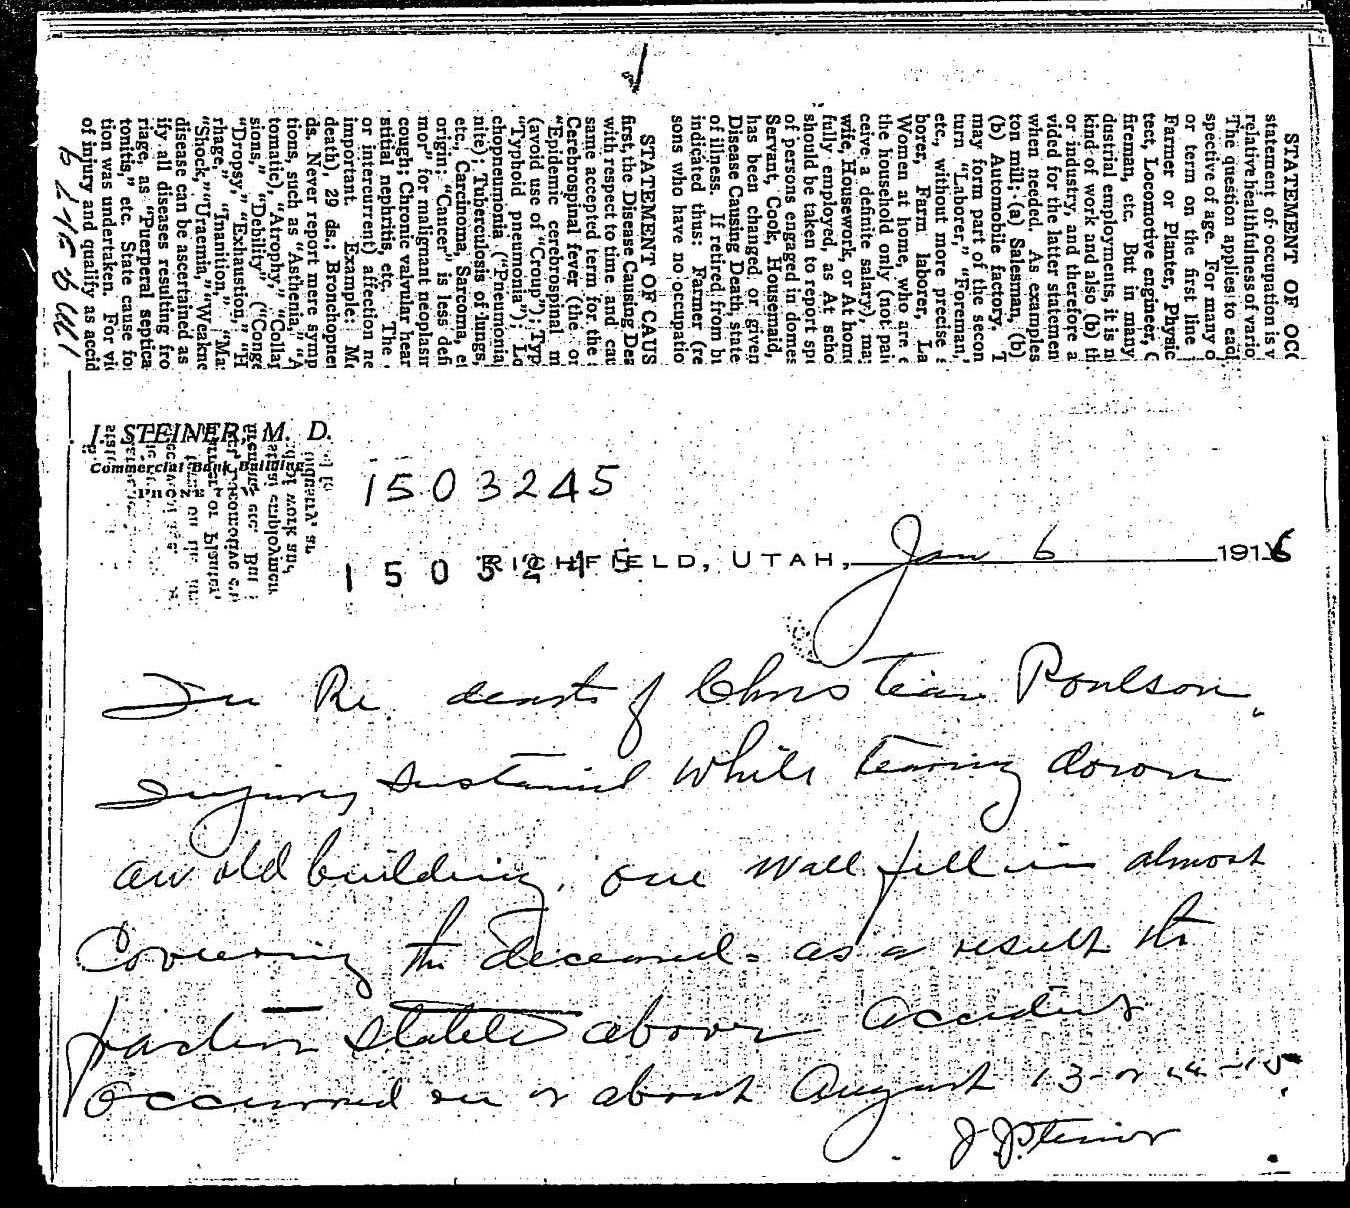 STATEMENT OF OCC
statement of occupation is v
relative healthfulness of vario
The question applies to each
spective of age. For many o
or term on the first line
Farmer or Planter, Physic
tect, Locomotive engineer, C
fireman, etc. But in many
dustrial employments, it is n
kind of work and also (b) th
or industry, and therefore a
vided for the latter statemen
when needed. As examples
ton mill; (a) Salesman, (b)
(b) Automobile factory. T
may form part of the secon
turn "Laborer," "Foreman,"
etc., without more precise s
borer, Farm laborer, La
Women at home, who are e
the household only (not paid
ceive a definite salary), may
wife, Housework, or At home
fully employed, as At scho
should be taken to report sp
of persons engaged in domes
Servant, Cook, Housemaid,
has been changed or given
Disease Causing Death, state
of illness. If retired from bu
indicated thus: Farmer (re
sons who have no occupatio
STATEMENT OF CAUS
first, the Disease Causing Dea
with respect to time and cau
same accepted term for the
Cerebrospinal fever (the or
"Epidemic cerebrospinal m
(avoid use of "Croup"); Typ
"Typhoid pneumonia"); Lo
chopneumonia ("Pneumonia,
nite); Tuberculosis of lungs,
etc., Carcinoma, Sarcoma, e
origin; "Cancer" is less defi
mor" for malignant neoplasm
cough; Chronic valvular hear
stitial nephritis, etc. The
or intercurrent) affection ne
important. Example: Me
death), 29 ds.; Bronchopneu
ds. Never report mere symp
tions, such as "Asthenia," "A
tomatic), "Atrophy," "Collap
sions," "Debility" ("Conge
"Dropsy," "Exhaustion," "H
rhage," "Inanition," "Ma
"Shock," "Uraemia," "Weakne
disease can be ascertained as
ify all diseases resulting fro
riage, as "Puerperal septica
tonitis," etc. State cause fo
tion was undertaken. For vio
of injury and qualify as accid
J. STEINER, M. D.
Commercial Bank Building
1503245
1503245
RICHFIELD, UTAH, Jan 6 1916
In Re death of Christian Poulson,
Injury sustained while tearing down
an old building, one wall fell in almost
covering the deceased. as a result the
fracture stated above accident
occurred on or about August 13 or 14 - 15.
J. Steiner